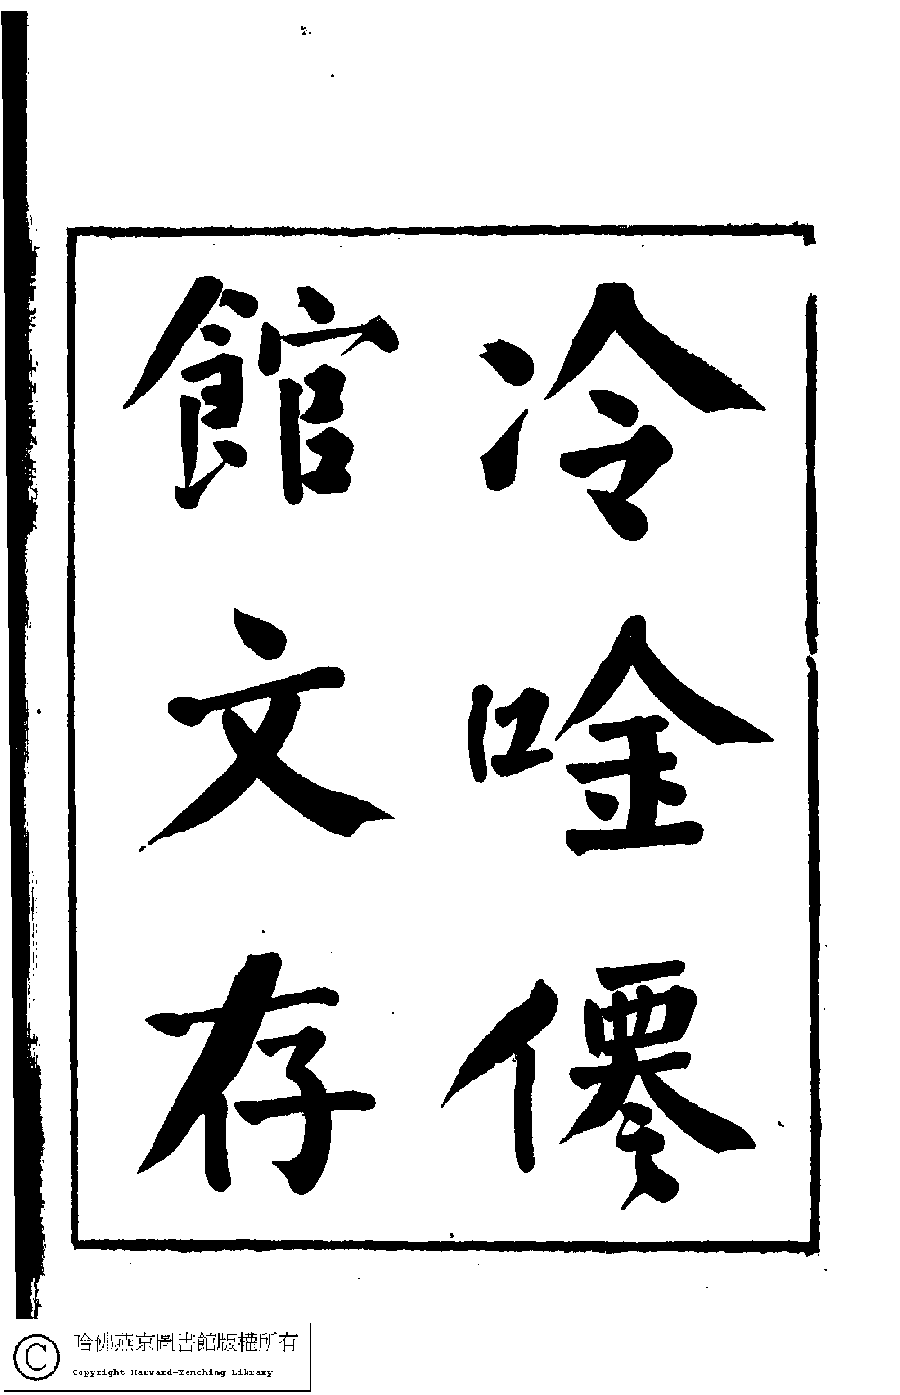 冷唫僊
館文存
哈佛燕京圖書館版權所有
Copyright Harvard-Yenching Library